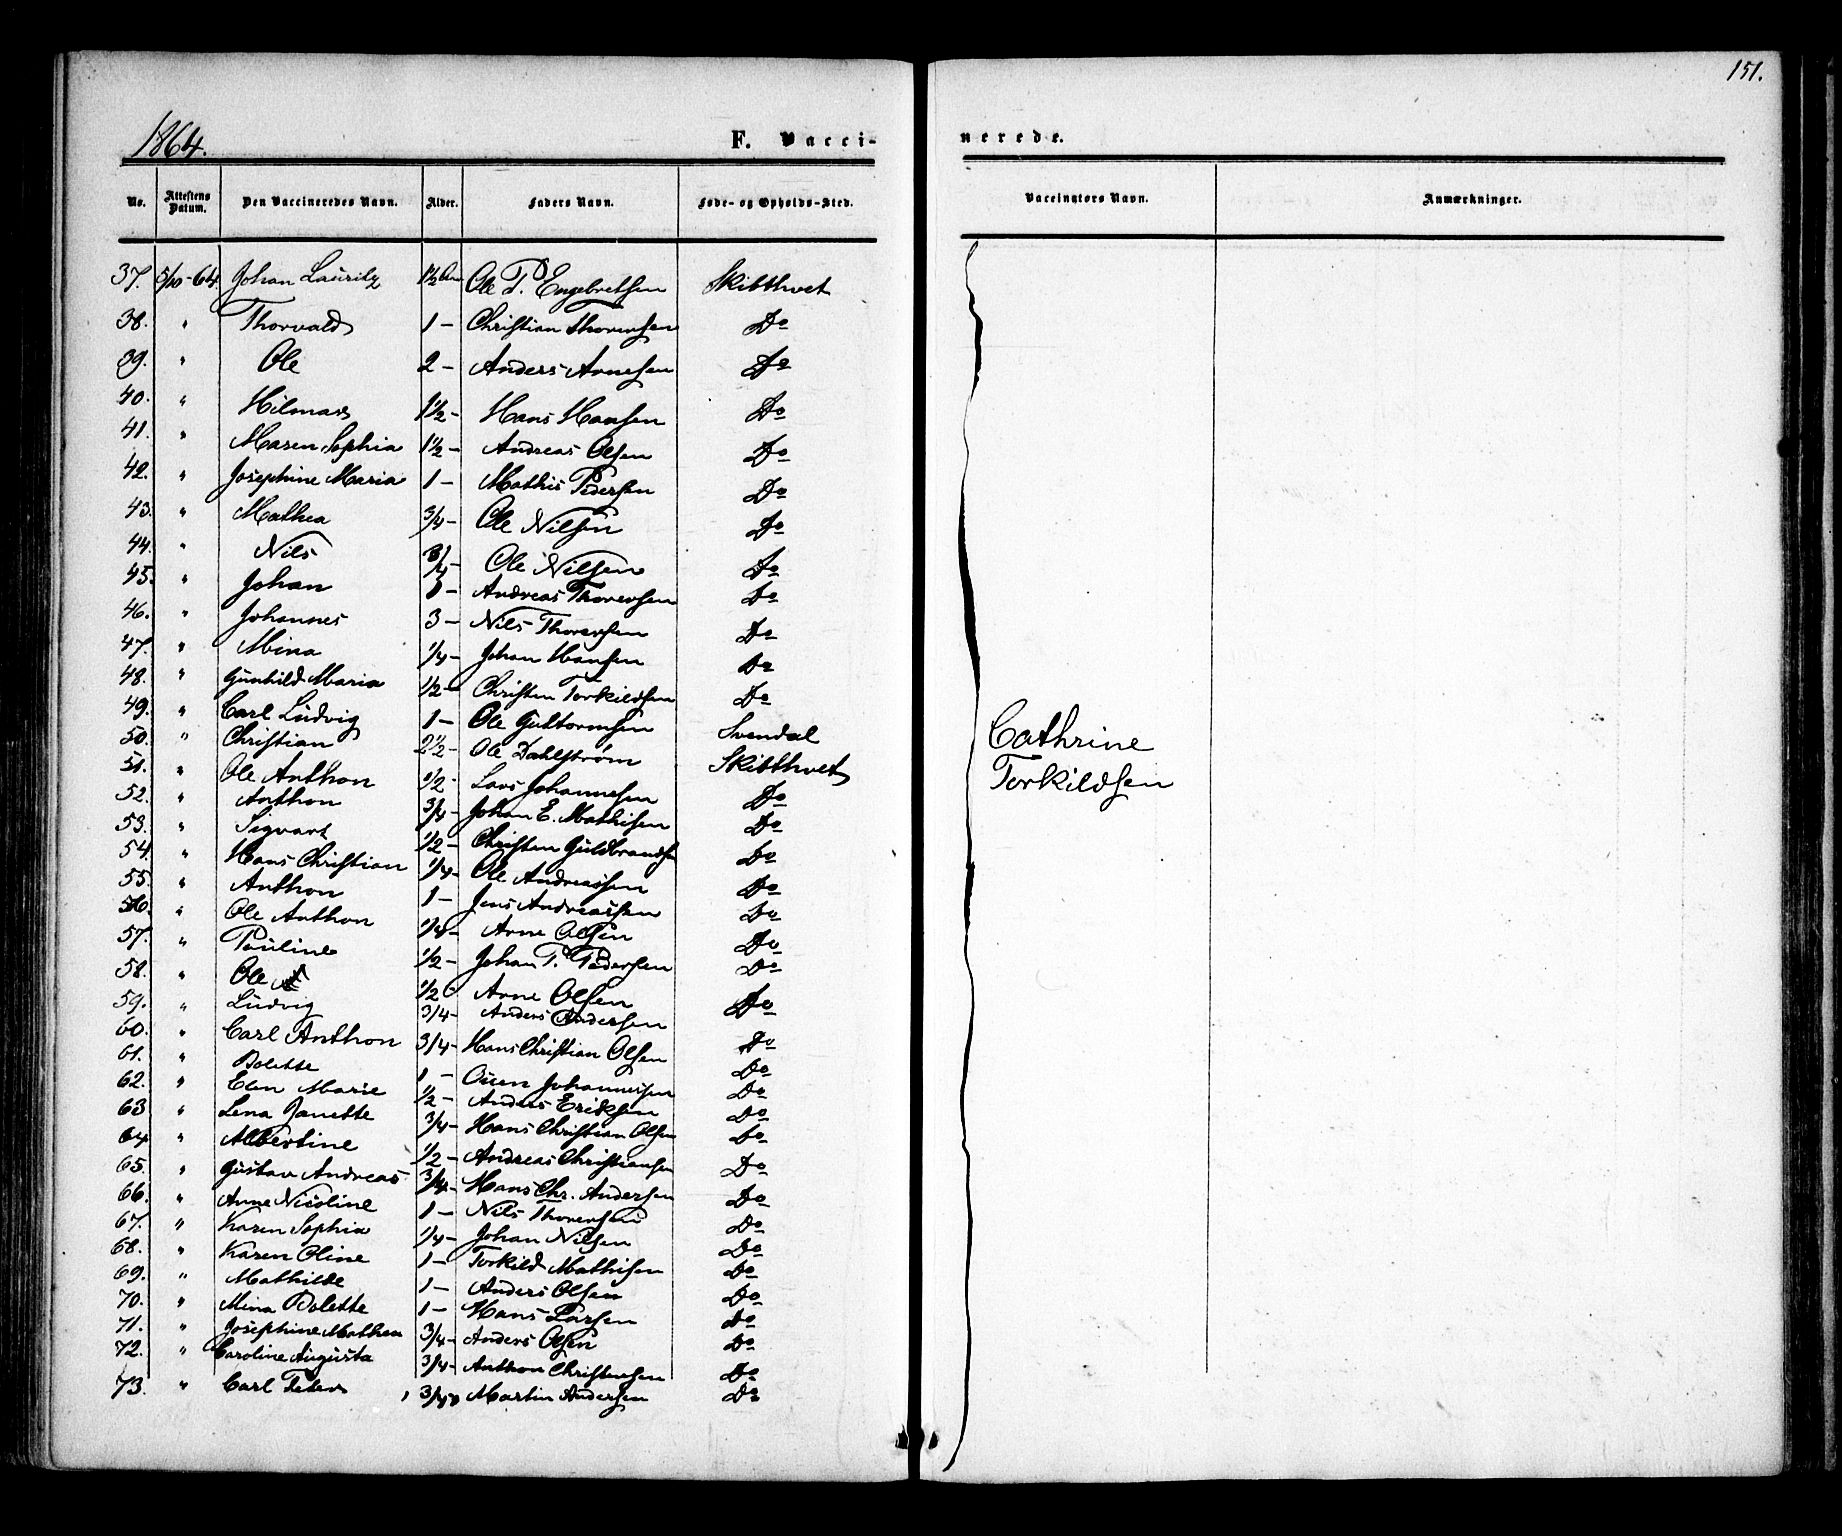 151.
1864. F. Vacci- nerede.
No. Attestens Datum. Den Vaccineredes Navn. Alder. Faders Navn. Føde- og Opholds-Sted. Vaccinators Navn. Anmærkninger.
37. 5/10-64. Johan Lauritz 1½ Ole P. Engebretsen Skibthvet
38. " Thorvald 1 - Christian Thoresen Do
39. " Ole 2 - Anders Arnesen Do
40. " Hilmar 1½ - Hans Hansen Do
41. " Maren Sophia 1½ - Andreas Olsen Do
42. " Josephine Maria 1 - Mathis Pedersen Do
43. " Mathea 3/4 - Ole Nilsen Do
44. " Nils 3/4 - Ole Nilsen Do
45. " Johan 1 - Andreas Thoresen Do
46. " Johannes 3 - Nils Thoresen Do
47. " Mina 1/4 - Johan Hansen Do
48. " Gunhild Maria 1/2 - Christen Torkildsen Do
49. " Carl Ludvig 1 - Ole Guttormsen Svendal
50. " Christian 2½ - Ole Dahlstrøm Skibthvet
51. " Ole Anthon 1/2 - Lars Johannesen Do
52. " Anthon 3/4 - Johan E. Mathisen Do
53. " Sigvart 1/2 - Christen Guldbrandsen Do
54. " Hans Christian 1/4 - Ole Andreassen Do
55. " Anthon 1 - Jens Andreassen Do
56. " Ole Anthon 1/4 - Arne Olsen Do
57. " Pauline 1/2 - Johan P. Pedersen Do
58. " Ole 1/2 - Arne Olsen Do
59. " Ludvig 3/4 - Anders Andersen
60. " Carl Anthon 3/4 - Hans Christian Olsen Do
61. " Bolette 1 - Ouen Johannesen Do
62. " Elen Marie 1/2 - Anders Eriksen Do
63 " Lena Janette 3/4 - Hans Christian Olsen Do
64. " Albertine 1/2 - Andreas Christiansen Do
65. " Gustav Andreas 3/4 - Hans Chr. Andersen Do
66. " Anne Nicoline 1 - Nils Thoresen Do
67. " Karen Sophia 1/4 - Johan Nilsen Do
68. " Karen Oline 1 - Torkild Mathisen Do
69. " Mathilde 1 - Anders Olsen Do
70. " Mina Bolette 1 - Hans Larsen Do
71. " Josephine Mathea 3/4 - Anders Olsen Do
72. " Caroline Augusta 3/4 - Anthon Christensen Do
73. " Carl Peter 3/4 Martin Andersen Do
Cathrine
Torkildsen